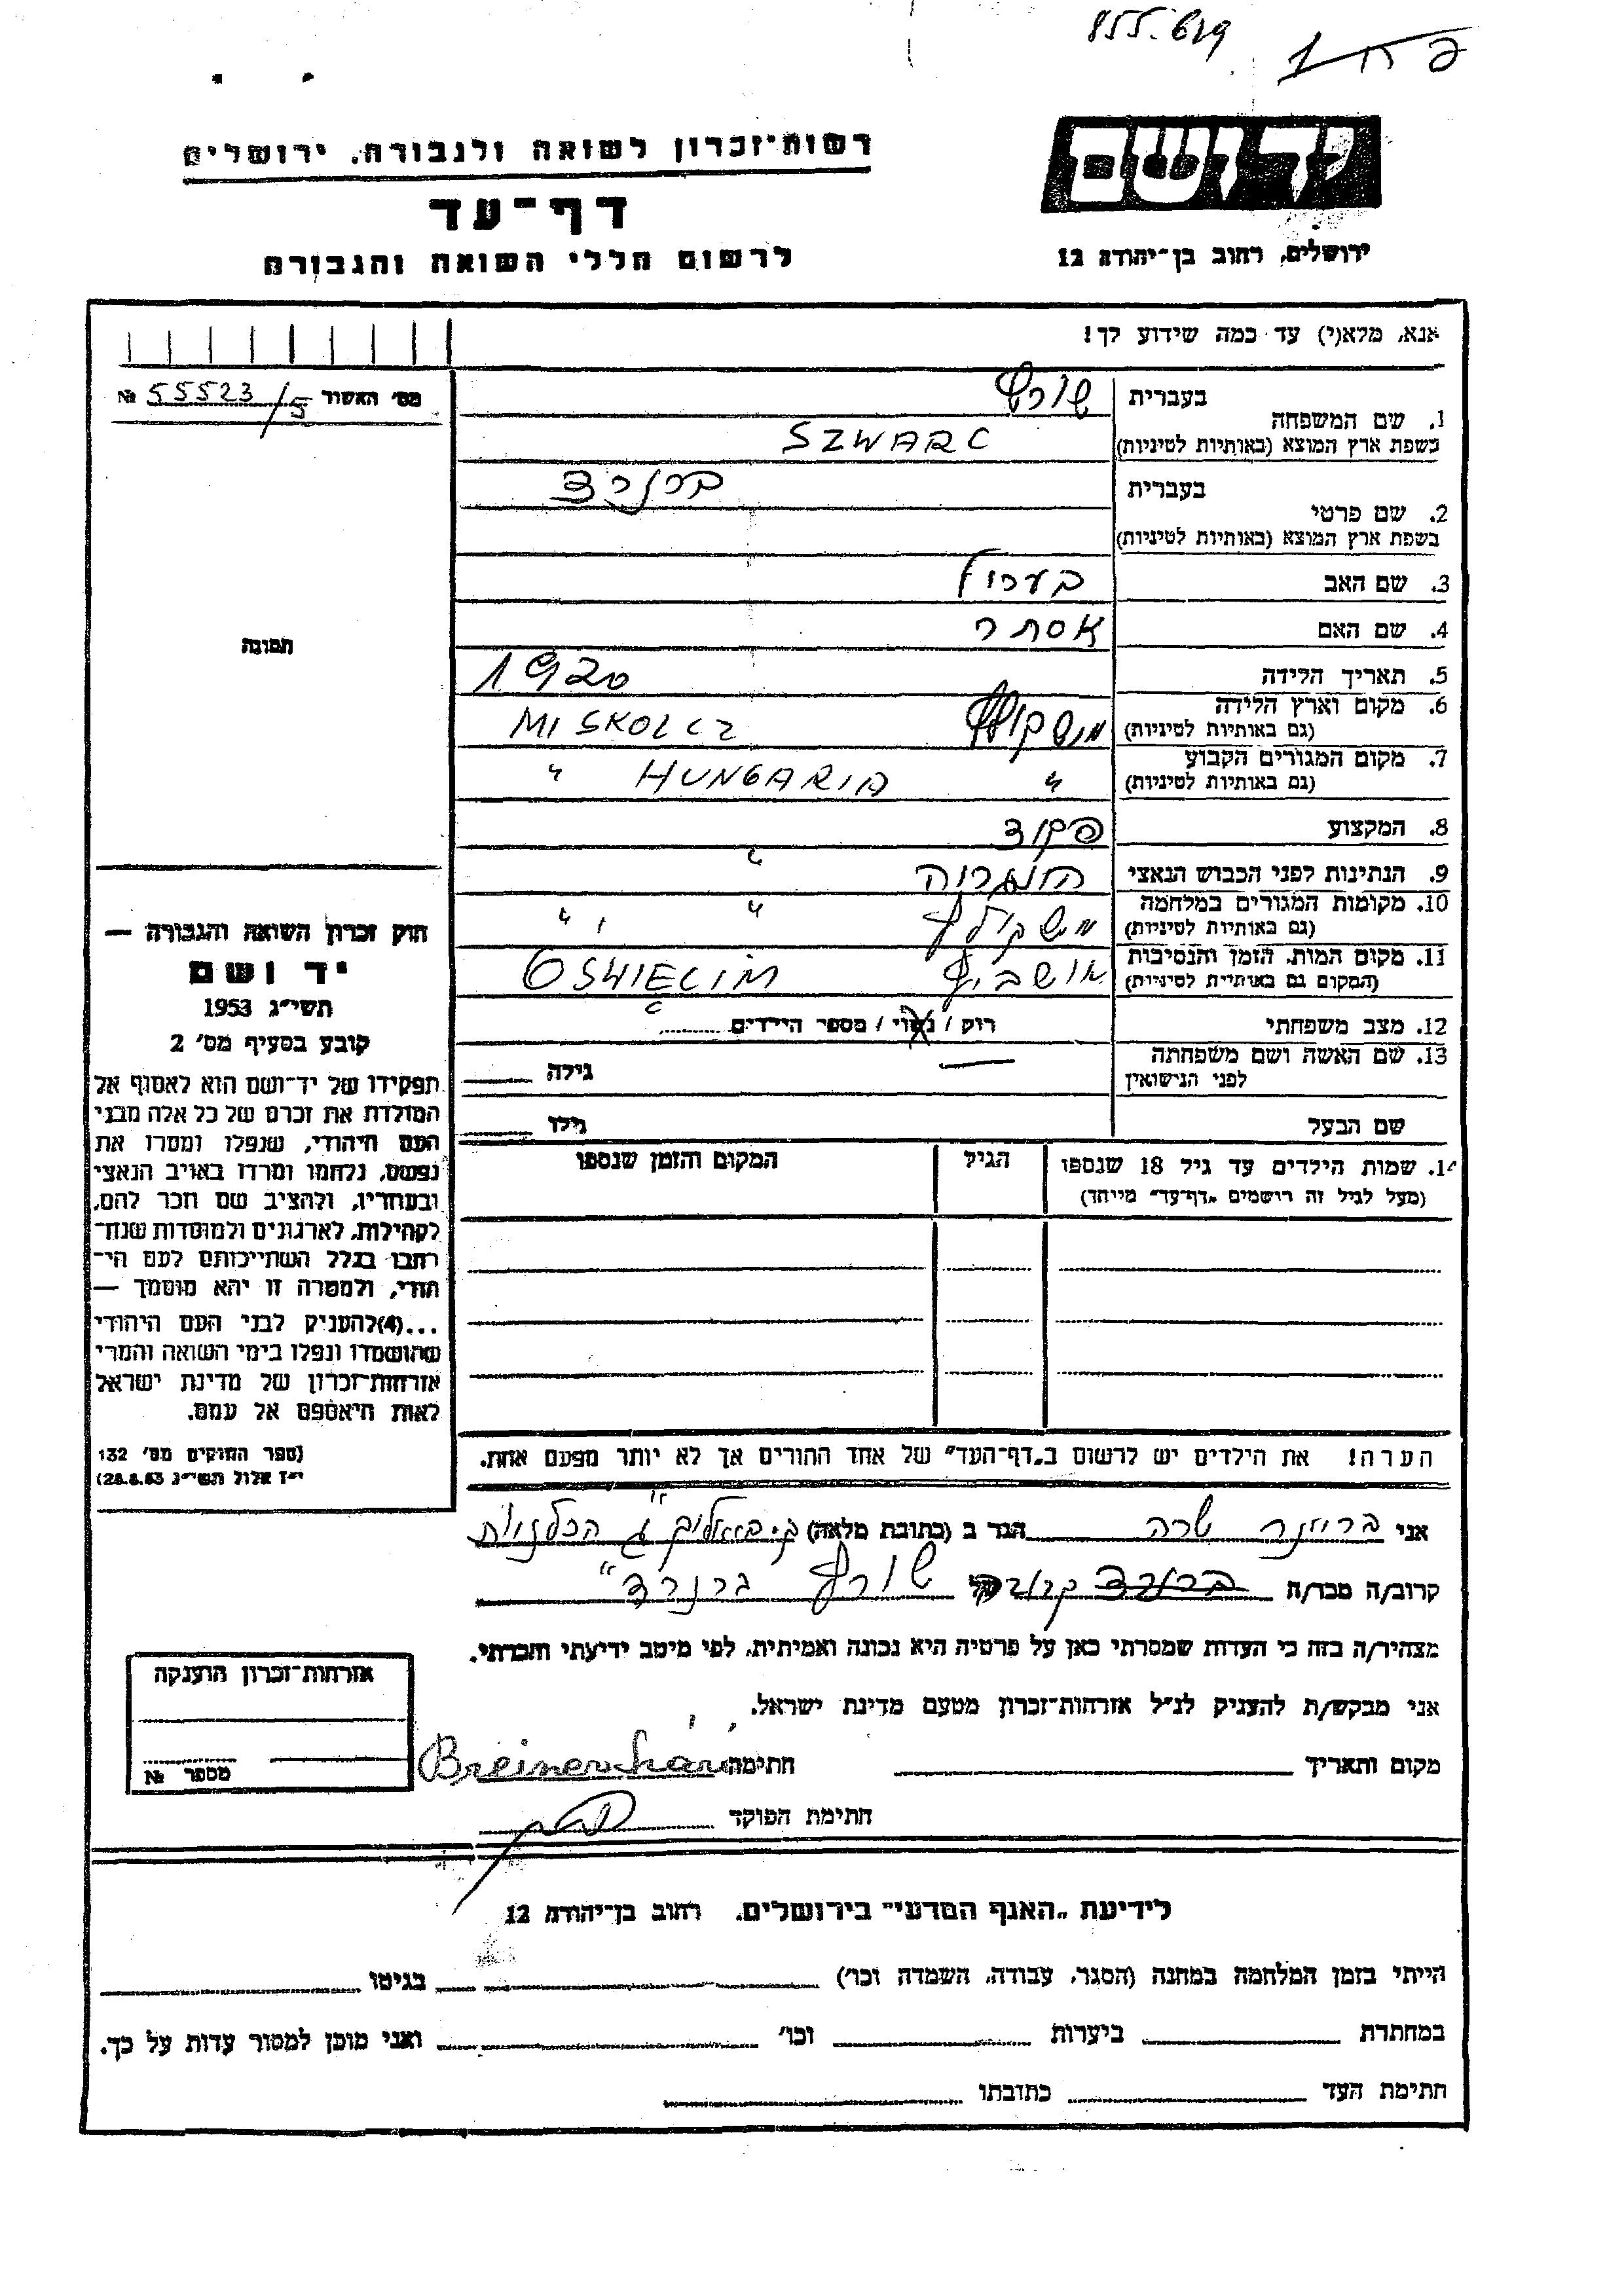 855.619
יד ושם
רשות־זכרון לשואה ולגבורה, ירושלים
דף־עד
לרשום חללי השואה והגבורה
ירושלים, רחוב בן־יהודה 12
אנא, מלא(י) עד כמה שידוע לך!
מס' האשור 55523/5 №
1. שם המשפחה
בעברית
שורץ
בשפת ארץ המוצא (באותיות לטיניות)
SZWARC
2. שם פרטי
בעברית
ברנרד
בשפת ארץ המוצא (באותיות לטיניות)
3. שם האב
4. שם האם אסתר
5. תאריך הלידה 1920
6. מקום וארץ הלידה
(גם באותיות לטיניות)
מישקולץ MISKOLCZ
7. מקום המגורים הקבוע
(גם באותיות לטיניות)
" HUNGARIA "
8. המקצוע פקיד
9. הנתינות לפני הכבוש הנאצי הונגריה
10. מקומות המגורים במלחמה
(גם באותיות לטיניות)
מישקולץ " " "
11. מקום המות, הזמן והנסיבות
(המקום גם באותיות לטיניות)
אושביץ OSWIĘCIM
12. מצב משפחתי רווק / נשוי / מספר הילדים
13. שם האשה ושם משפחתה
לפני הנישואין
— גילה
שם הבעל גילו
14. שמות הילדים עד גיל 18 שנספו
(מעל לגיל זה רושמים „דף־עד" מיוחד)
הגיל
המקום והזמן שנספו
הערה! את הילדים יש לרשום ב„דף־העד" של אחד ההורים אך לא יותר מפעם אחת.
תמונה
חוק זכרון השואה והגבורה —
יד ושם
תשי"ג 1953
קובע בסעיף מס' 2
תפקידו של יד־ושם הוא לאסוף אל
המולדת את זכרם של כל אלה מבני
העם היהודי, שנפלו ומסרו את
נפשם, נלחמו ומרדו באויב הנאצי
ובעוזריו, ולהציב שם וזכר להם,
לקהילות, לארגונים ולמוסדות שנח־
רבו בגלל השתייכותם לעם היי־
הודי, ולמטרה זו יהא מוסמך —
...(4)להעניק לבני העם היהודי
שהושמדו ונפלו בימי השואה והמרי
אזרחות־זכרון של מדינת ישראל
לאות היאספם אל עמם.
(ספר החוקים מס' 132
י"ז אלול תשי"ג 28.8.53)
אני ברוינר שרה הגר ב (כתובת מלאה) ק. ביאליק ג הכלניות
קרוב/ה מכר/ה ברנרד קרובה של שורץ ברנרד
מצהיר/ה בזה כי העדות שמסרתי כאן על פרטיה היא נכונה ואמיתית, לפי מיטב ידיעתי והכרתי.
אני מבקש/ת להעניק לנ"ל אזרחות־זכרון מטעם מדינת ישראל.
מקום ותאריך חתימה Breiner Sári
חתימת הפוקד
אזרחות־זכרון הוענקה
מספר №
לידיעת „האגף המדעי" בירושלים, רחוב בן־יהודה 12
הייתי בזמן המלחמה במחנה (הסגר, עבודה, השמדה וכו') בגיטו
במחתרת ביערות וכו' ואני מוכן למסור עדות על כך.
חתימת העד כתובתו